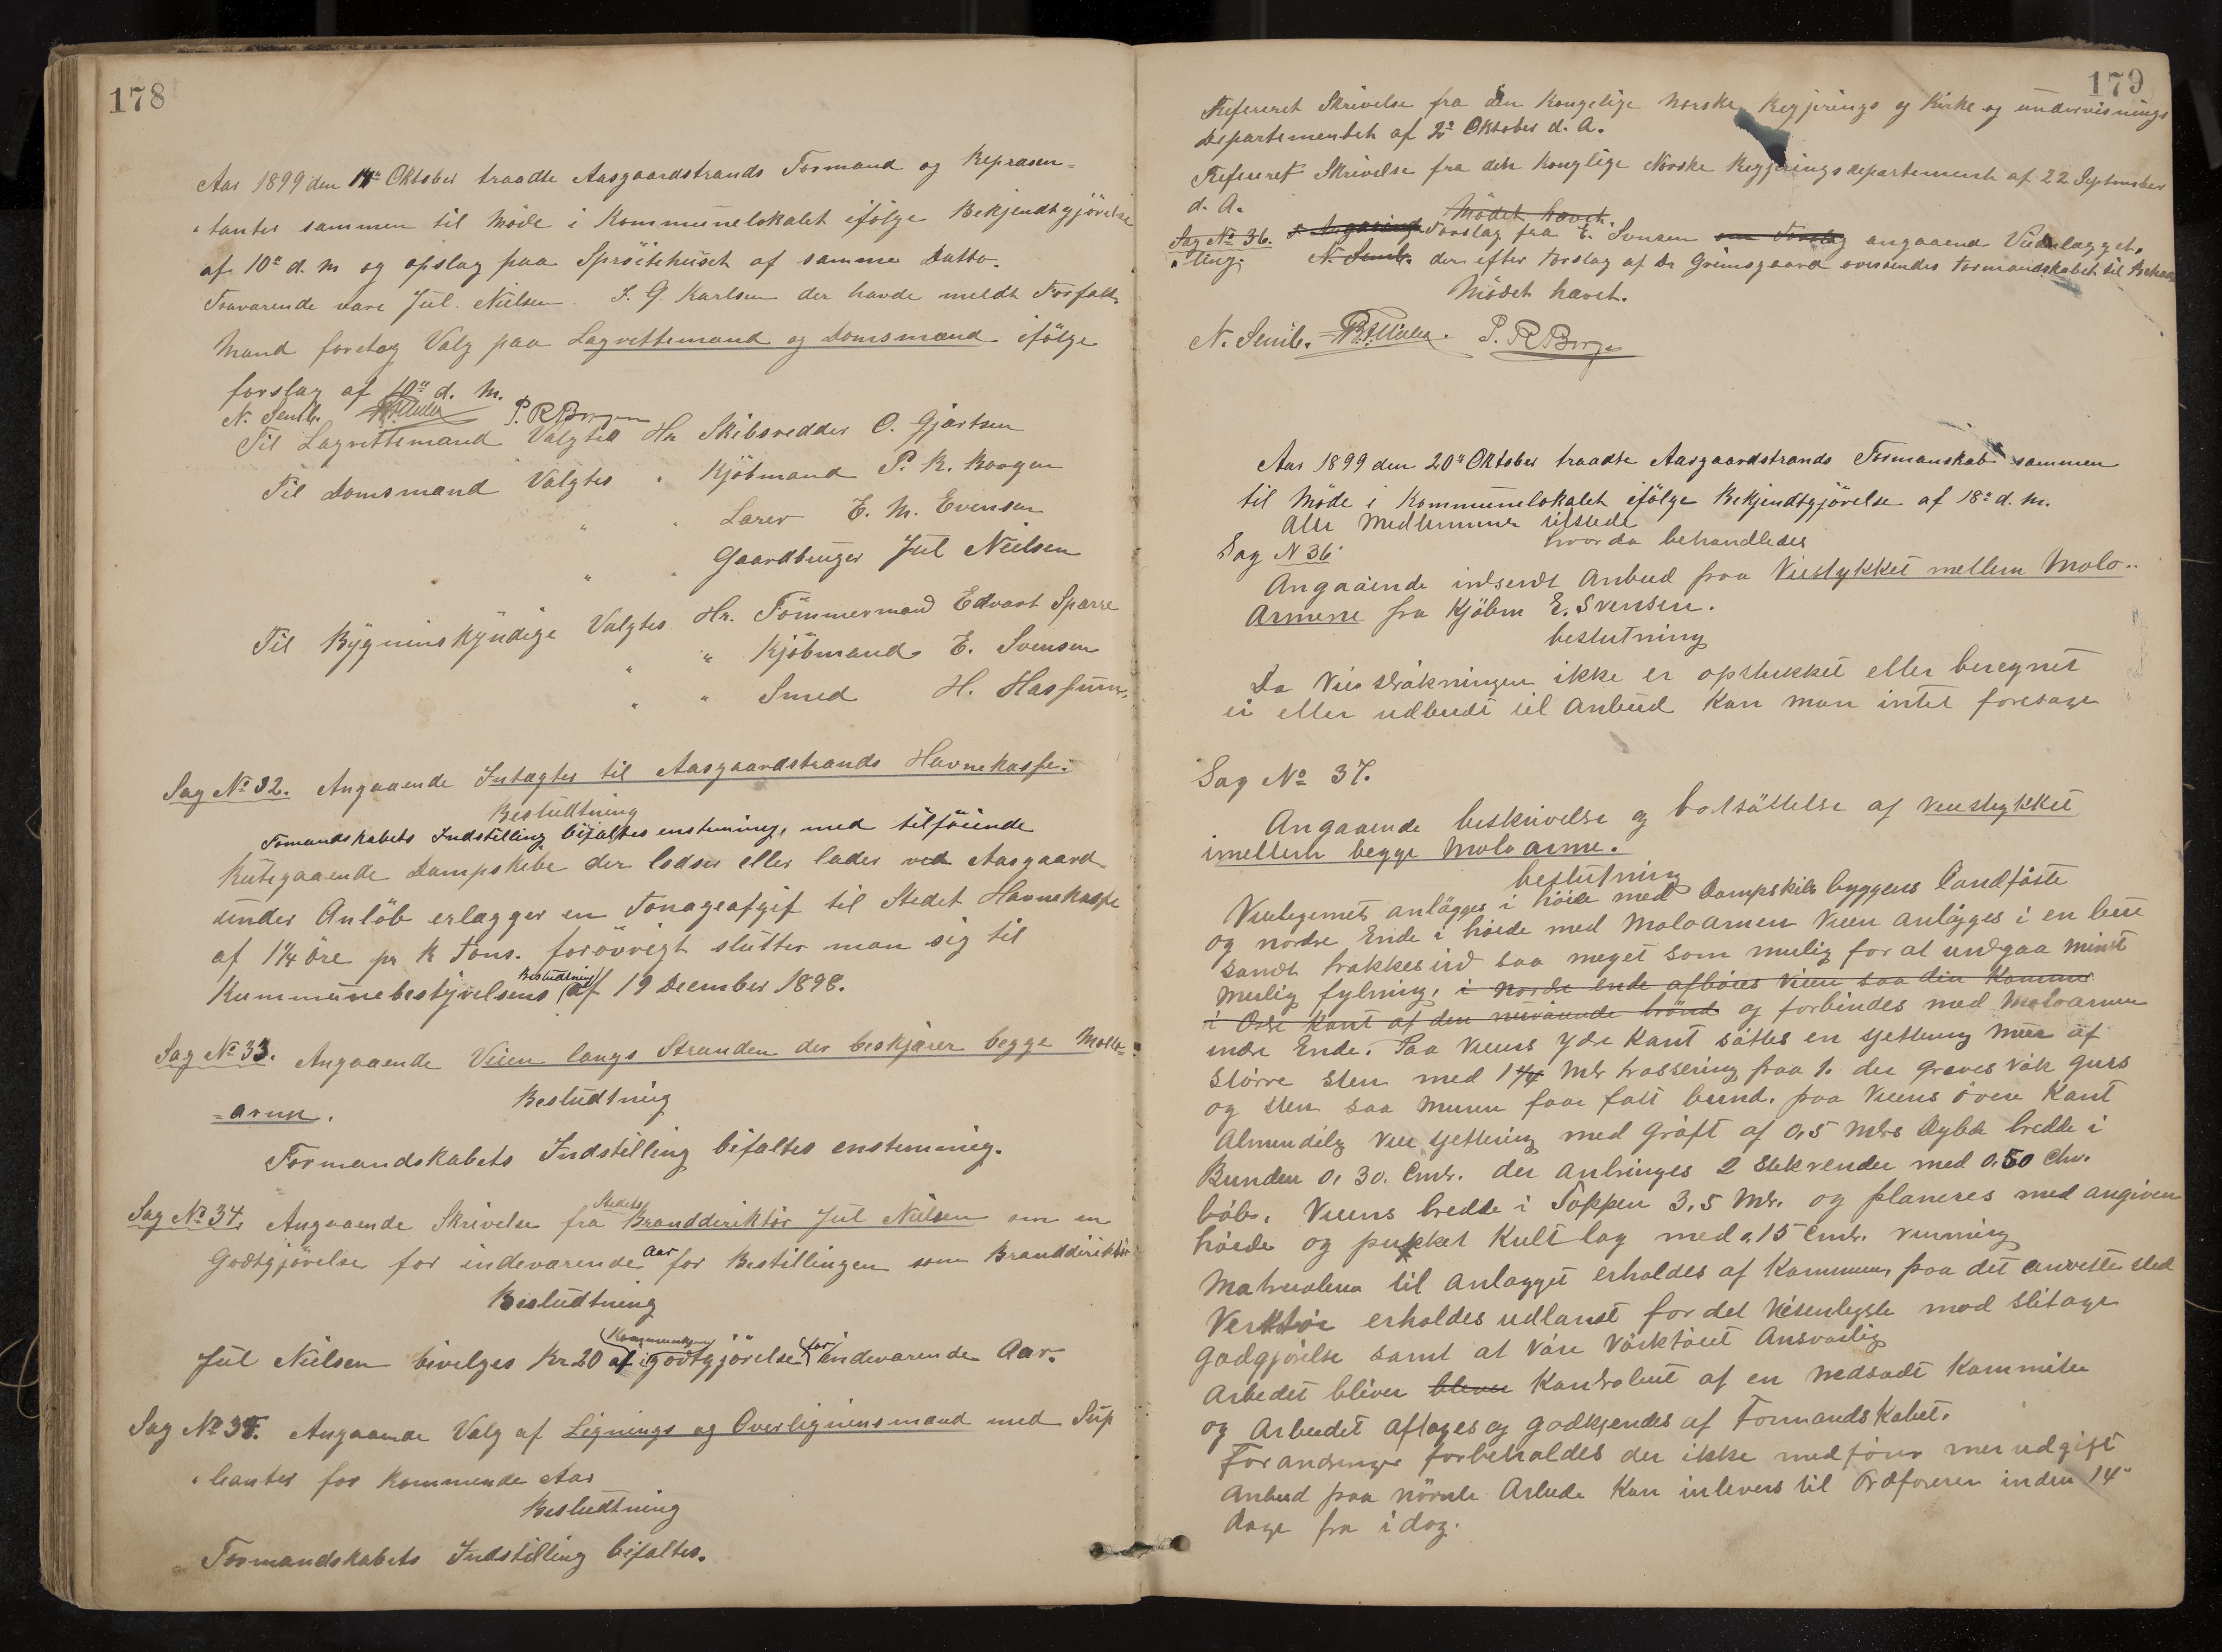 178
Aar 1899 den 14de Oktober traadte Aasgaardstrands Formand og Repræsen-
tanter sammen til Møde i Kommunelokalet ifølge Bekjendtgjørelse
af 10de d. M og opslag paa Sprøitehuset af samme Datto.
Fraværende vare Jul. Nielsen. J. G. Karlsen der havde meldt Forfald.
Mand foretog Valg paa Lagrettemænd og Domsmænd ifølge
forslag af 10de d. M.
N. Semb. P. R Borgen
Til Lagrettemænd Valgtes Hr Skibsredder O. Gjærtsen
Til Domsmænd Valgtes " Kjøbmand P. R. Borgen
" " Lærer E. M. Evensen
" " Gaardbruger Jul Nielsen
Til Bygninskyndige Valgtes Hr. Tømmermand Edvart Sparre
" " Kjøbmand E. Svensen
" " Smed H. Hassum.
Sag No 32. Angaaende Intægter til Aasgaardstrands Havnekasse.
Besludtning
Fomandskabets Indstilling bifaltes enstemmig, med tilføiende
Rutegaaende Dampskibe der losser eller lader ved Aasgaard
under Anløb erlægger en Tonageafgif til Stedet Havnekasse
af 1 1/4 øre pr R Tons. forøvrigt slutter man sig til
Kummunebestyrelsens Besludtning af 19 December 1898.
Sag No 33. Angaaende Veien langs Stranden der beskjærer begge Molo-
-arme.
Besludtning
Formandskabets Indstilling bifaltes enstemmig.
Sag No 34. Angaaende Skrivelse fra Stedets Branddirektør Jul Nielsen om en
Godtgjørelse for indeværende Aar for Bestillingen som Branddirektør
Besludtning
Jul Nielsen bivilges Kr 20 af Kommunekassen i godtgjørelse for indeværende Aar.
Sag No 35. Angaaende Valg af Lignings og Overligninsmænd med Sup
leanter for kommende Aar
Besludtning
Formandskabets Indstilling bifaltes.
179
Refereret Skrivelse fra den Kongelige Norske Regjerings og Kirke og undervisnings
Departementet af 2de Oktober d. A.
Refereret Skrivelse fra det konglige Norske Regjeringsdepartement af 22 September
d. A.
Mødet hævet.
Sag No 36. Angaaende Forslag fra E. Svensen om Forslag angaaend Veianlægget,
N. Semb. der efter Forslag af Dr Grimsgaard oversendes Formandskabet til Behand
ling.
Mødet hævet.
N. Semb. P. R Borgen
Aar 1899 den 20de Oktober traadte Aasgaardstrands Formanskab sammen
til Møde i Kommunelokalet ifølge Bekjendtgjørelse af 18de d. M.
Alle Medlemmer tilstede
hvor da behandledes
Sag N 36
Angaaende intsendt Anbud paa Veistykket mellem Molo-
Armene fra Kjøbm E. Svensen.
beslutning
Da Veistrækningen ikke er opstukket eller beregnet
ei eller udbudt til Anbud kan man intet foretage
Sag No 37.
Angaaende beskrivelse og bortsættelse af veistykket
imellem begge Moloarme.
beslutning
Veilegemet anlægges i høide med Dampskibsbryggens landfæste
og nordre Ende i høide med Moloarmen Veien anlægges i en linie
samt trækkes ind saa meget som mulig for at undgaa minst
mulig fylning, i nordre ende afbøies Veien saa den kommer
i Østre kant af den nuværende brønd og forbindes med Moloarmen
indre Ende. Paa Veiens ydre kant sættes en tjettung mur af
større sten med 1 1/4 Mtr trassering paa 1. der graves væk grus
og sten saa muren faar fast bund. paa Veiens øvre kant
Almindelig vei tjettning med grøft af 0,5 Mtrs Dybde bredde i
Bunden 0,30. Cmtr. der anbringes 2 stekrender med 0.50 Cmtr.
løb. Veiens bredde i Toppen 3,5 Mtr. og planeres med angiven
høide og pukket kult lag med 0,15 Cmtr. running
Matrealerne til anlægget erholdes af Kommunen paa det anviste sted
Verktøi erholdes udlaant for det Vesentligste mod slitage
godgjørelse samt at være Værktøiet Ansvarlig
Arbedet bliver bliver kontroleret af en nedsadt Kommite
og Arbeidet aftages og godkjendes af Formandskabet.
Forandringer forbeholdes der ikke medfører mer udgift
Anbud paa nævnte Arbeide kan inleveres til Ordføreren inden 14
dage fra i dag.